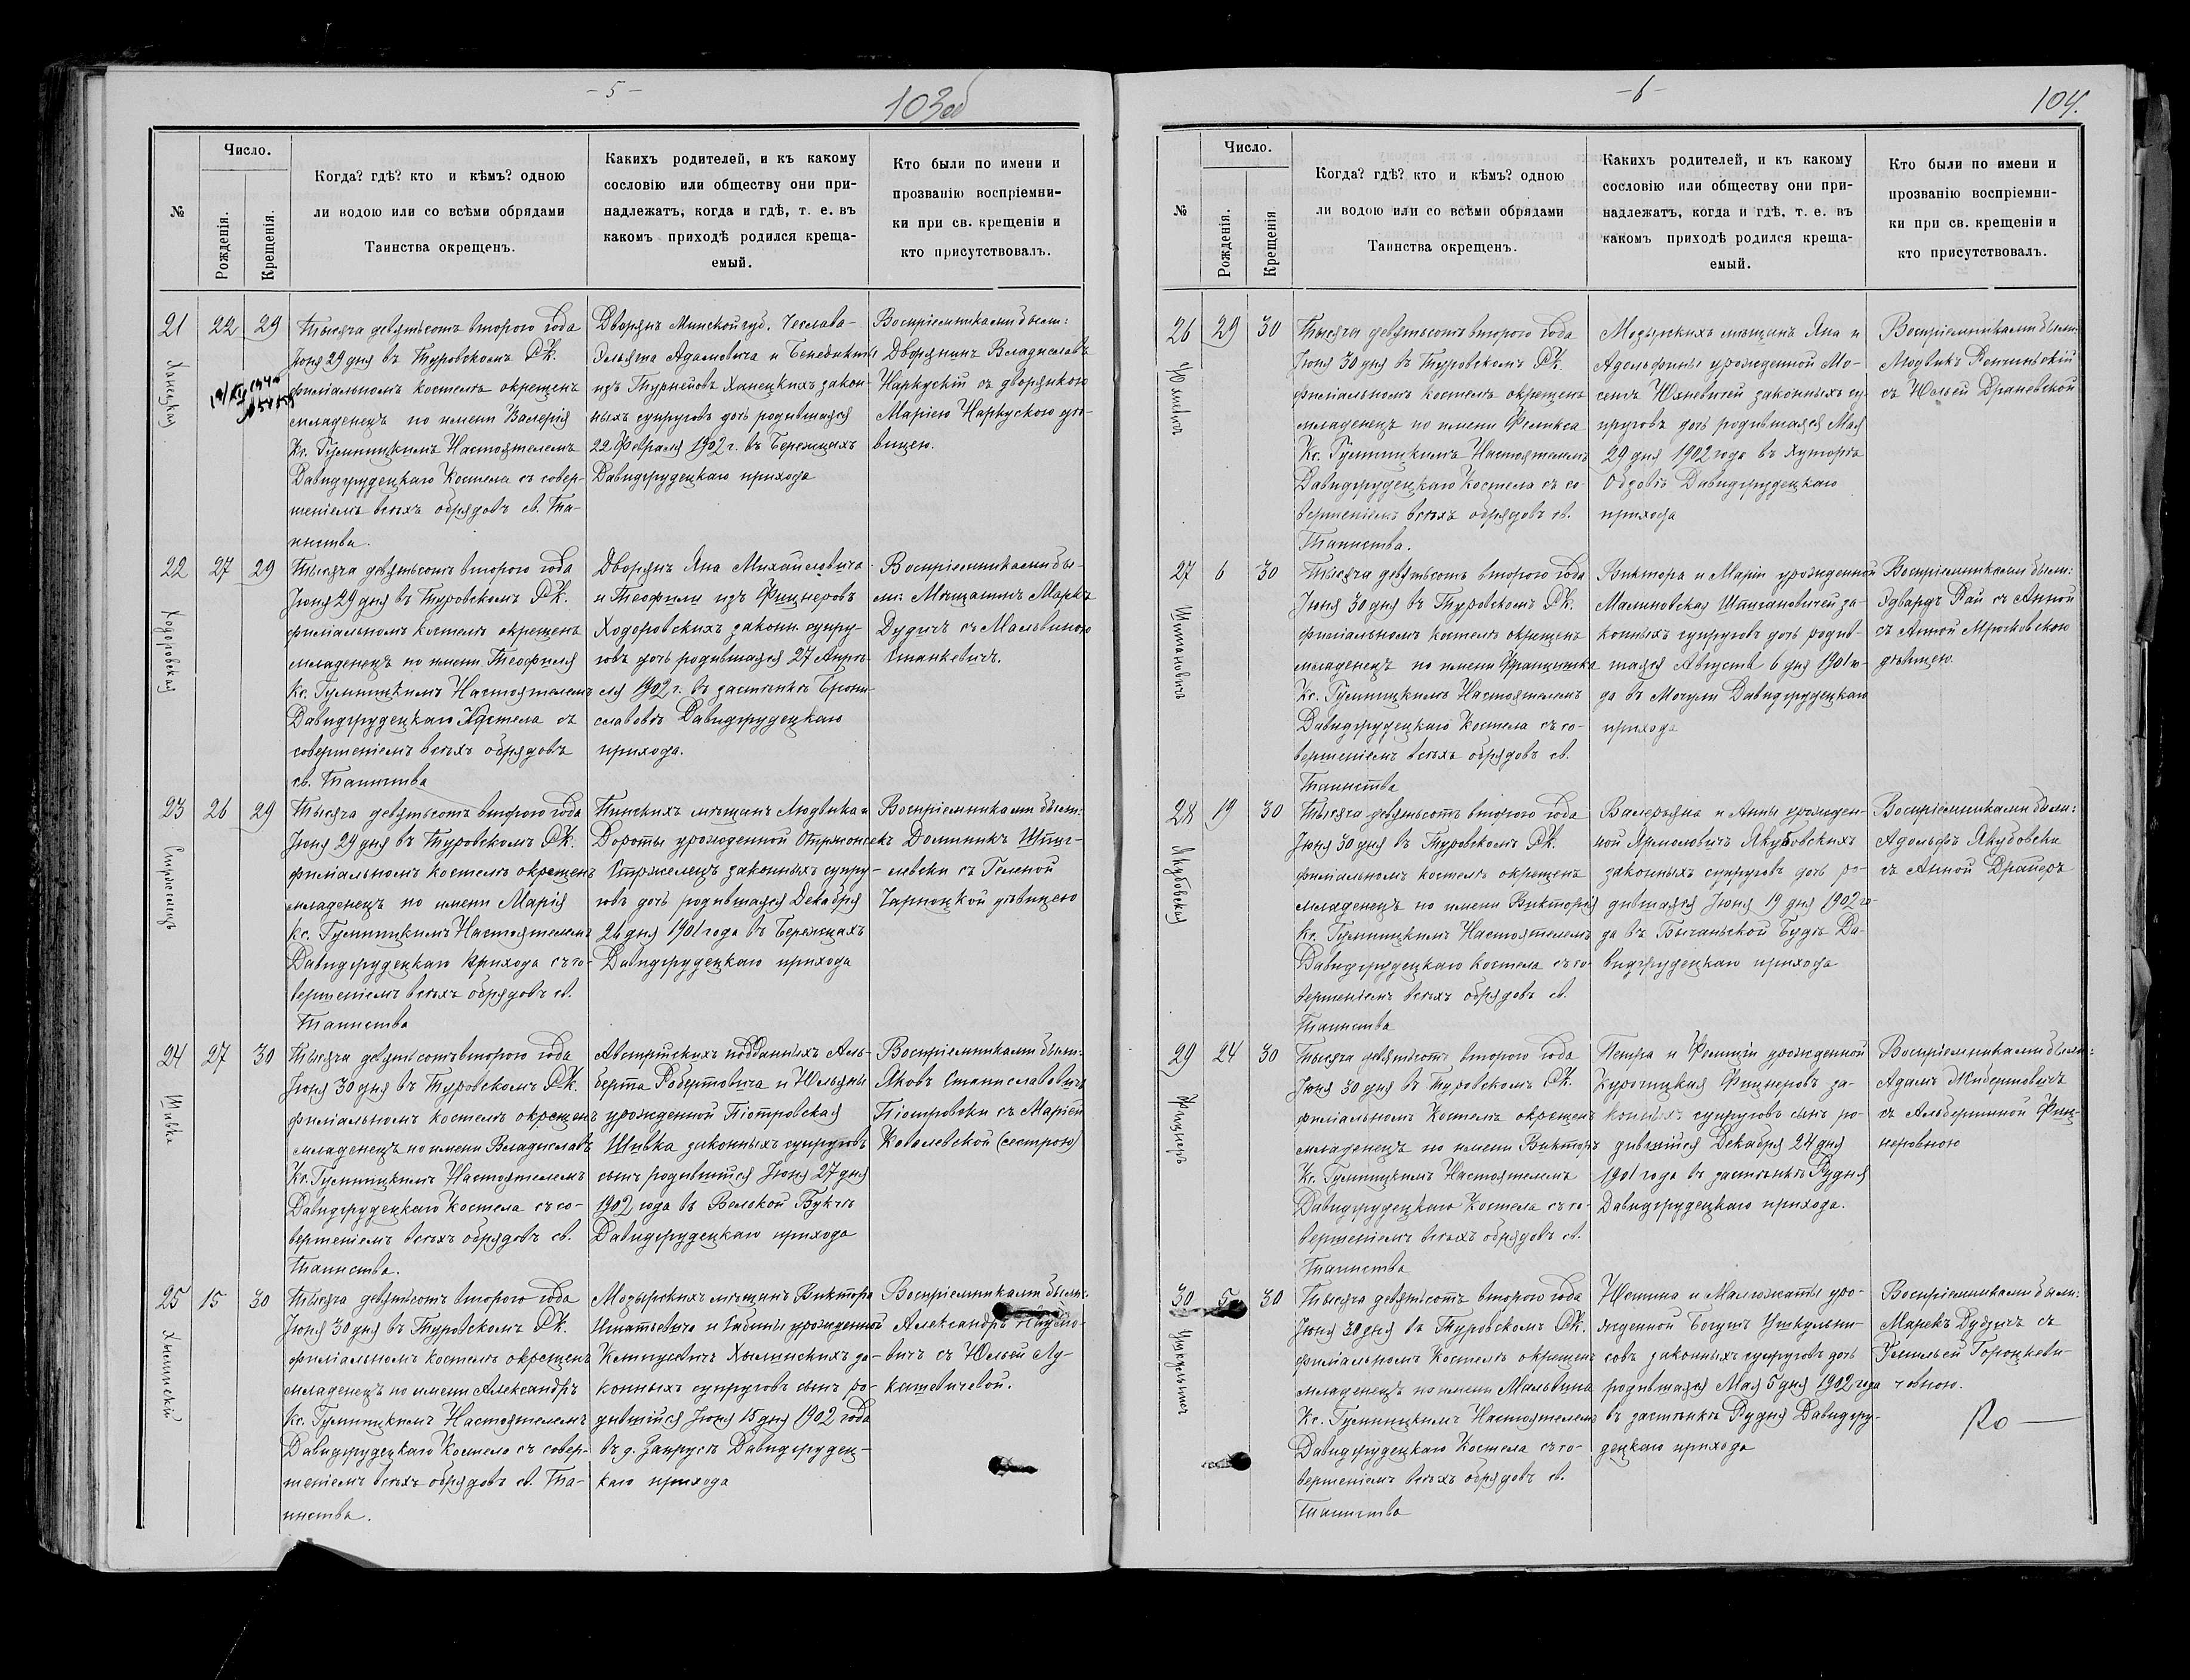 - 5 -
103об
№
Число.
Рожденія.
Крещенія.
Когда? гдѣ? кто и кѣмъ? одною
ли водою или со всѣми обрядами
Таинства окрещенъ.
Какихъ родителей, и къ какому
сословію или обществу они при-
надлежатъ, когда и гдѣ, т. е. въ
какомъ приходѣ родился креща-
емый.
Кто были по имени и
прозванію воспріемни-
ки при св. крещеніи и
кто присутствовалъ.
21
Ханецкая
22
29
Тысяча девятьсотъ второго года
Іюня 29 дня въ Туровскомъ Р.К.
филіальномъ костелѣ окрещенъ
младенецъ по имени Валерія
Кс. Гумницкимъ Настоятелемъ
Давидгрудецкаго Костела съ совер-
шеніемъ всѣхъ обрядовъ св. Та-
инства.
Дворянъ Минской губ. Чеслава-
Эльяша Адамовича и Бенедикты
изъ Турнейовъ Ханецкихъ закон-
ныхъ супруговъ дочь родившаяся
22 Февраля 1902 г. въ Бережцахъ
Давидгрудецкаго прихода
Воспріемниками были:
Дворянинъ Владиславъ
Наркускій съ дворянкою
Маріею Наркускою дѣ-
вицею.
22
Ходоровская
27
29
Тысяча девятьсотъ второго года
Іюня 29 дня въ Туровскомъ Р.К.
филіальномъ костелѣ окрещенъ
младенецъ по имени Теофиля
Кс. Гумницкимъ Настоятелемъ
Давидгрудецкаго Костела съ
совершеніемъ всѣхъ обрядовъ
св. Таинства
Дворянъ Яна Михайловича
и Теофили изъ Фицнеровъ
Ходоровскихъ законн. супру-
говъ дочь родившаяся 27 Апрѣ-
ля 1902 г. въ застѣнкѣ Брони-
славовѣ Давидгрудецкаго
прихода.
Воспріемниками бы-
ли: Мѣщанинъ Маркъ
Дудичъ съ Мальвиною
Станкевичъ.
23
Стржелецъ
26
29
Тысяча девятьсотъ второго года
Іюня 29 дня въ Туровскомъ Р.К.
филіальномъ костелѣ окрещенъ
младенецъ по имени Марія
Кс. Гумницкимъ Настоятелемъ
Давидгрудецкаго прихода съ со-
вершеніемъ всѣхъ обрядовъ св.
Таинства
Пинскихъ мѣщанъ Людвика и
Дороты урожденной
Стржелецъ законныхъ супру-
говъ дочь родившаяся Декабря
26 дня 1901 года въ Бережцахъ
Давидгрудецкаго прихода
Воспріемниками были:
Доминикъ Шпиг-
левски съ Геленой
Чарноцкой дѣвицею
24
Шивка
27
30
Тысяча девятьсотъ второго года
Іюня 30 дня въ Туровскомъ Р.К.
филіальномъ костелѣ окрещенъ
младенецъ по имени Владиславъ
Кс. Гумницкимъ Настоятелемъ
Давидгрудецкаго Костела съ со-
вершеніемъ всѣхъ обрядовъ св.
Таинства.
Австрійскихъ подданныхъ Аль-
берта Робертовича и Юльяны
урожденной Піотровская
Шивка законныхъ супруговъ
сынъ родившійся Іюня 27 дня
1902 года въ Велокой Букчѣ
Давидгрудецкаго прихода
Воспріемниками были:
Яковъ Станиславовичъ
Піотровски съ Маріей
Ковалевской (сестрою)
25
Хылинскій
15
30
Тысяча девятьсотъ второго года
Іюня 30 дня въ Туровскомъ Р.К.
филіальномъ костелѣ окрещенъ
младенецъ по имени Александръ
Кс. Гумницкимъ Настоятелемъ
Давидгрудецкаго Костела съ совер-
шеніемъ всѣхъ обрядовъ св. Та-
инства.
Мозырскихъ мѣщанъ Виктора
Игнатьевича и Сабины урожденной
Хылинскихъ за-
конныхъ супруговъ сынъ ро-
дившійся Іюня 15 дня 1902 года
въ д. Запрусѣ Давидгрудец-
каго прихода
Воспріемниками были:
Александръ
вичъ съ Юльей Лу-
кашевичевой.
- 6 -
104.
№
Число.
Рожденія.
Крещенія
Когда? гдѣ? кто и кѣмъ? одною
ли водою или со всѣми обрядами
Таинства окрещенъ.
Какихъ родителей, и къ какому
сословію или обществу они при-
надлежатъ, когда и гдѣ, т. е. въ
какомъ приходѣ родился креща-
емый.
Кто были по имени и
прозванію воспріемни-
ки при св. крещеніи и
кто присутствовалъ.
26
29
30
Тысяча девятьсотъ второго года
Іюня 30 дня въ Туровскомъ Р.К.
филіальномъ костелѣ окрещенъ
младенецъ по имени Фелиkса
Кс. Гумницкимъ Настоятелемъ
Давидгрудецкаго Костела съ со-
вершеніемъ всѣхъ обрядовъ св.
Таинства.
Мозырскихъ мѣщанъ Яна и
Адельфины урожденной Мо-
законныхъ су-
пруговъ дочь родившаяся Мая
29 дня 1902 года въ Хуторѣ
Давидгрудецкаго
прихода
Воспріемниками были:
Людвикъ
съ Юльей Драневской
27
Шпигановичъ
6
30
Тысяча девятьсотъ второго года
Іюня 30 дня въ Туровскомъ Р.К.
филіальномъ костелѣ окрещенъ
младенецъ по имени Францишка
Кс. Гумницкимъ Настоятелемъ
Давидгрудецкаго Костела съ со-
вершеніемъ всѣхъ обрядовъ св.
Таинства
Виктора и Маріи урожденной
Малиновская Шпигановичей за-
конныхъ супруговъ дочь родив-
шаяся Августа 6 дня 1901 го-
да въ Мочули Давидгрудецкаго
прихода
Воспріемниками были:
Эдвардъ Рай съ Анной
съ Анной Мрочковскою
дѣвицею.
28
Якубовская
19
30
Тысяча девятьсотъ второго года
Іюня 30 дня въ Туровскомъ Р.К.
филіальномъ костелѣ окрещенъ
младенецъ по имени Викторія
Кс. Гумницкимъ Настоятелемъ
Давидгрудецкаго костела съ со-
вершеніемъ всѣхъ обрядовъ св.
Таинства
Валерьяна и Анны урожден-
ной Ярмоловичъ Якубовскихъ
законныхъ супруговъ дочь ро-
дившаяся Іюня 19 дня 1902 го-
да въ Бычаньской Будѣ Да-
видгрудецкаго прихода
Воспріемниками были:
Адольфъ Якубовски
съ Анной Драперъ
29
Фицнеръ
24
30
Тысяча девятьсотъ второго года
Іюня 30 дня въ Туровскомъ Р.К.
филіальномъ Костелѣ окрещенъ
младенецъ по имени Викторъ
Кс. Гумницкимъ Настоятелемъ
Давидгрудецкаго Костела съ со-
вершеніемъ всѣхъ обрядовъ св.
Таинства
Петра и Фелиціи урожденной
Курочицкая Фицнеровъ за-
конныхъ супруговъ сынъ ро-
дившійся Декабря 24 дня
1901 года въ застѣнкѣ Рудня
Давидгрудецкаго прихода.
Воспріемниками были:
Адамъ
съ Альбертиной Фиц-
неровною
30
Ушкульпичъ
5
30
Тысяча девятьсотъ второго года
Іюня 30 дня въ Туровскомъ Р.К.
филіальномъ Костелѣ окрещенъ
младенецъ по имени Мальвина
Кс. Гумницкимъ Настоятелемъ
Давидгрудецкаго Костела съ со-
вершеніемъ всѣхъ обрядовъ св.
Таинства
Юстина и Малгожаты уро-
жденной Богушъ
законныхъ супруговъ дочь
родившаяся Мая 5 дня 1902 года
въ застѣнкѣ Рудня Давидгру-
децкаго прихода
Воспріемниками были:
Марекъ Дудзичъ съ
Эмильей Городцеви-
човною.